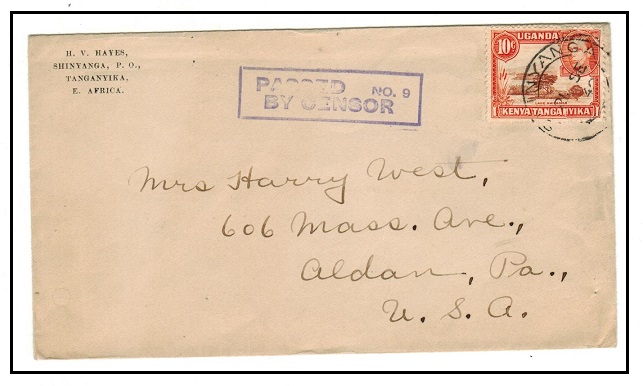 H. V. HAYES,
SHINYANGA, P. O.,
TANGANYIKA,
E. AFRICA.
PASSED NO. 9
BY CENSOR
UGANDA
10c
KENYA TANGANYIKA
INYANGA
Mrs Harry West,
606 Mass. Ave.,
Aldan, Pa.,
U. S. A.